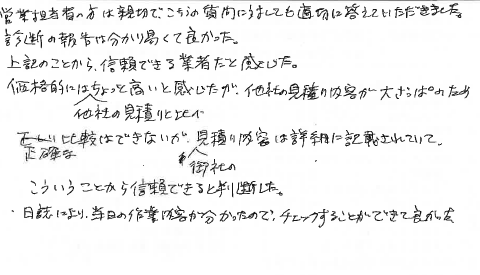 営業担当者の方は親切で、こちらの質問にうましても適切に答えていただきました。
診断の報告は分かり易くて良かった。
上記のことから、信頼できる業者だと感じた。
価格的にはちょっと高いと感じたが、他社の見積り内容が大ざっぱのため
他社の見積りと比べ
正確な比較はできないが、見積り内容は詳細に記載されていて、
御社の
こういうことから信頼できると判断した。
・日誌により、当日の作業内容が分かったので、チェックすることができて良かった